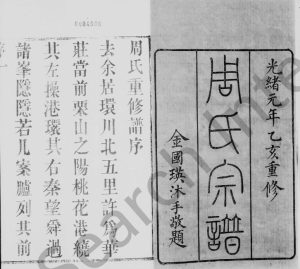 光緒元年乙亥重修
周氏宗譜
金國瑛沐手敬題
周氏重修譜序
去余居環川北五里許爲華
莊當前栗山之陽桃花港繞
其左操港環其右秦望舜過
諸峯隱隱若几案臚列其前